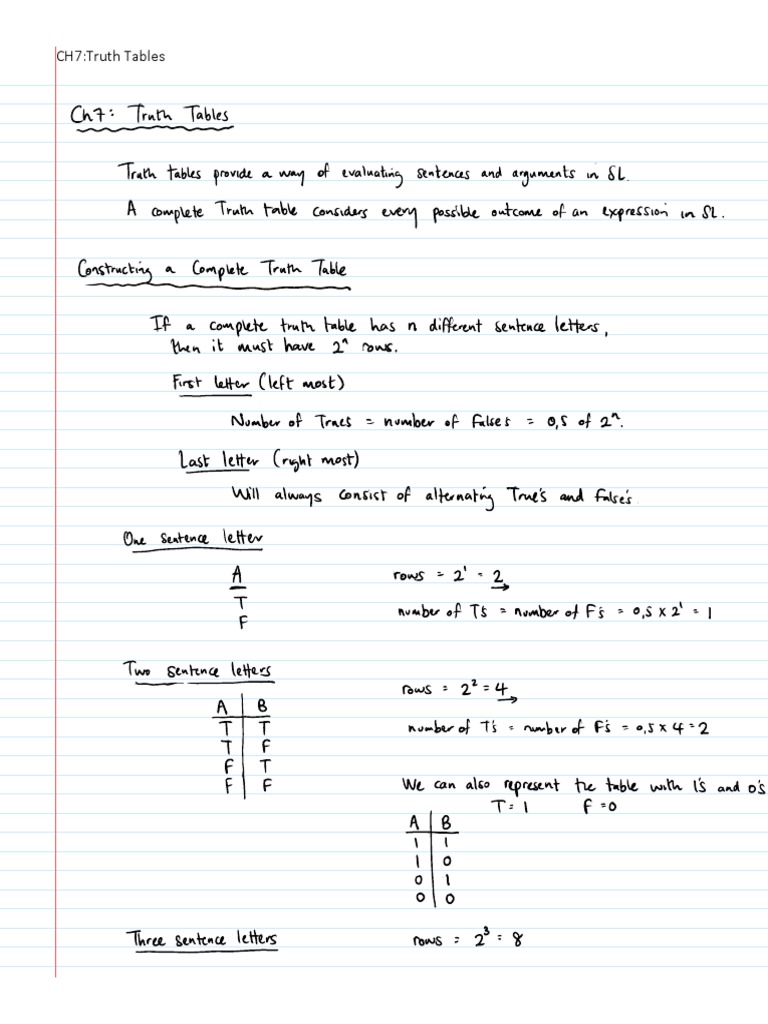 CH7:Truth Tables
Ch7: Truth Tables
Truth tables provide a way of evaluating sentences and arguments in SL.
A complete Truth table considers every possible outcome of an expression in SL.
Constructing a Complete Truth Table
If a complete truth table has n different sentence letters,
then it must have 2ⁿ rows.
First letter (left most)
Number of Trues = number of Falses = 0,5 of 2ⁿ.
Last letter (right most)
Will always consist of alternating True's and False's
One sentence letter
A rows = 2¹ = 2
T
number of T's = number of F's = 0,5 x 2¹ = 1
F
Two sentence letters
rows = 2² = 4
A B
T T number of T's = number of F's = 0,5 x 4 = 2
T F
F T
F F We can also represent the table with 1's and 0's
T = 1 F = 0
A B
1 1
1 0
0 1
0 0
Three sentence letters rows = 2³ = 8